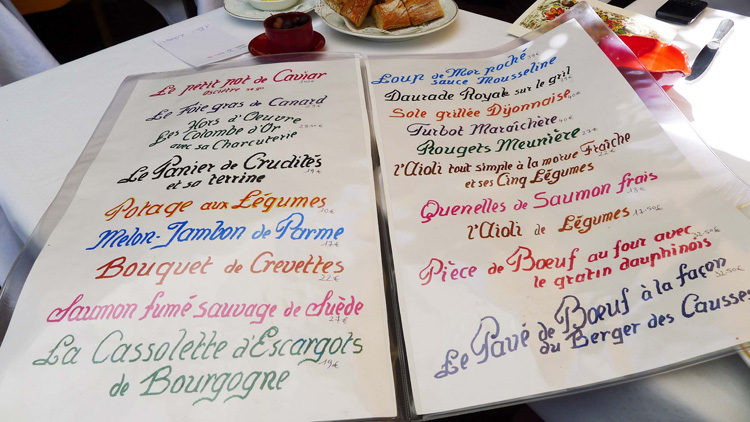 Le petit pot de Caviar
osciètre 30 gr
Le Foie gras de Canard
Les Hors d'Oeuvre
Colombe d'Or
avec sa Charcuterie
Le Panier de Crudités
et sa terrine 19€
Potage aux Légumes
10€
Melon-Jambon de Parme
17€
Bouquet de Crevettes
22€
Saumon fumé sauvage de Suède
27€
La Cassolette d'Escargots
de Bourgogne 19€
Loup de Mer poché
sauce Mousseline
Daurade Royale sur le gril
Sole grillée Dijonnaise
Turbot Maraîchère
Rougets Meunière
l'Aioli tout simple à la morue Fraîche
et ses Cinq Légumes 22€
Quenelles de Saumon frais
l'Aioli de Légumes 12.50€
Pièce de Bœuf au four avec
le gratin dauphinois
Le Pavé de Bœuf à la façon
du Berger des Causses